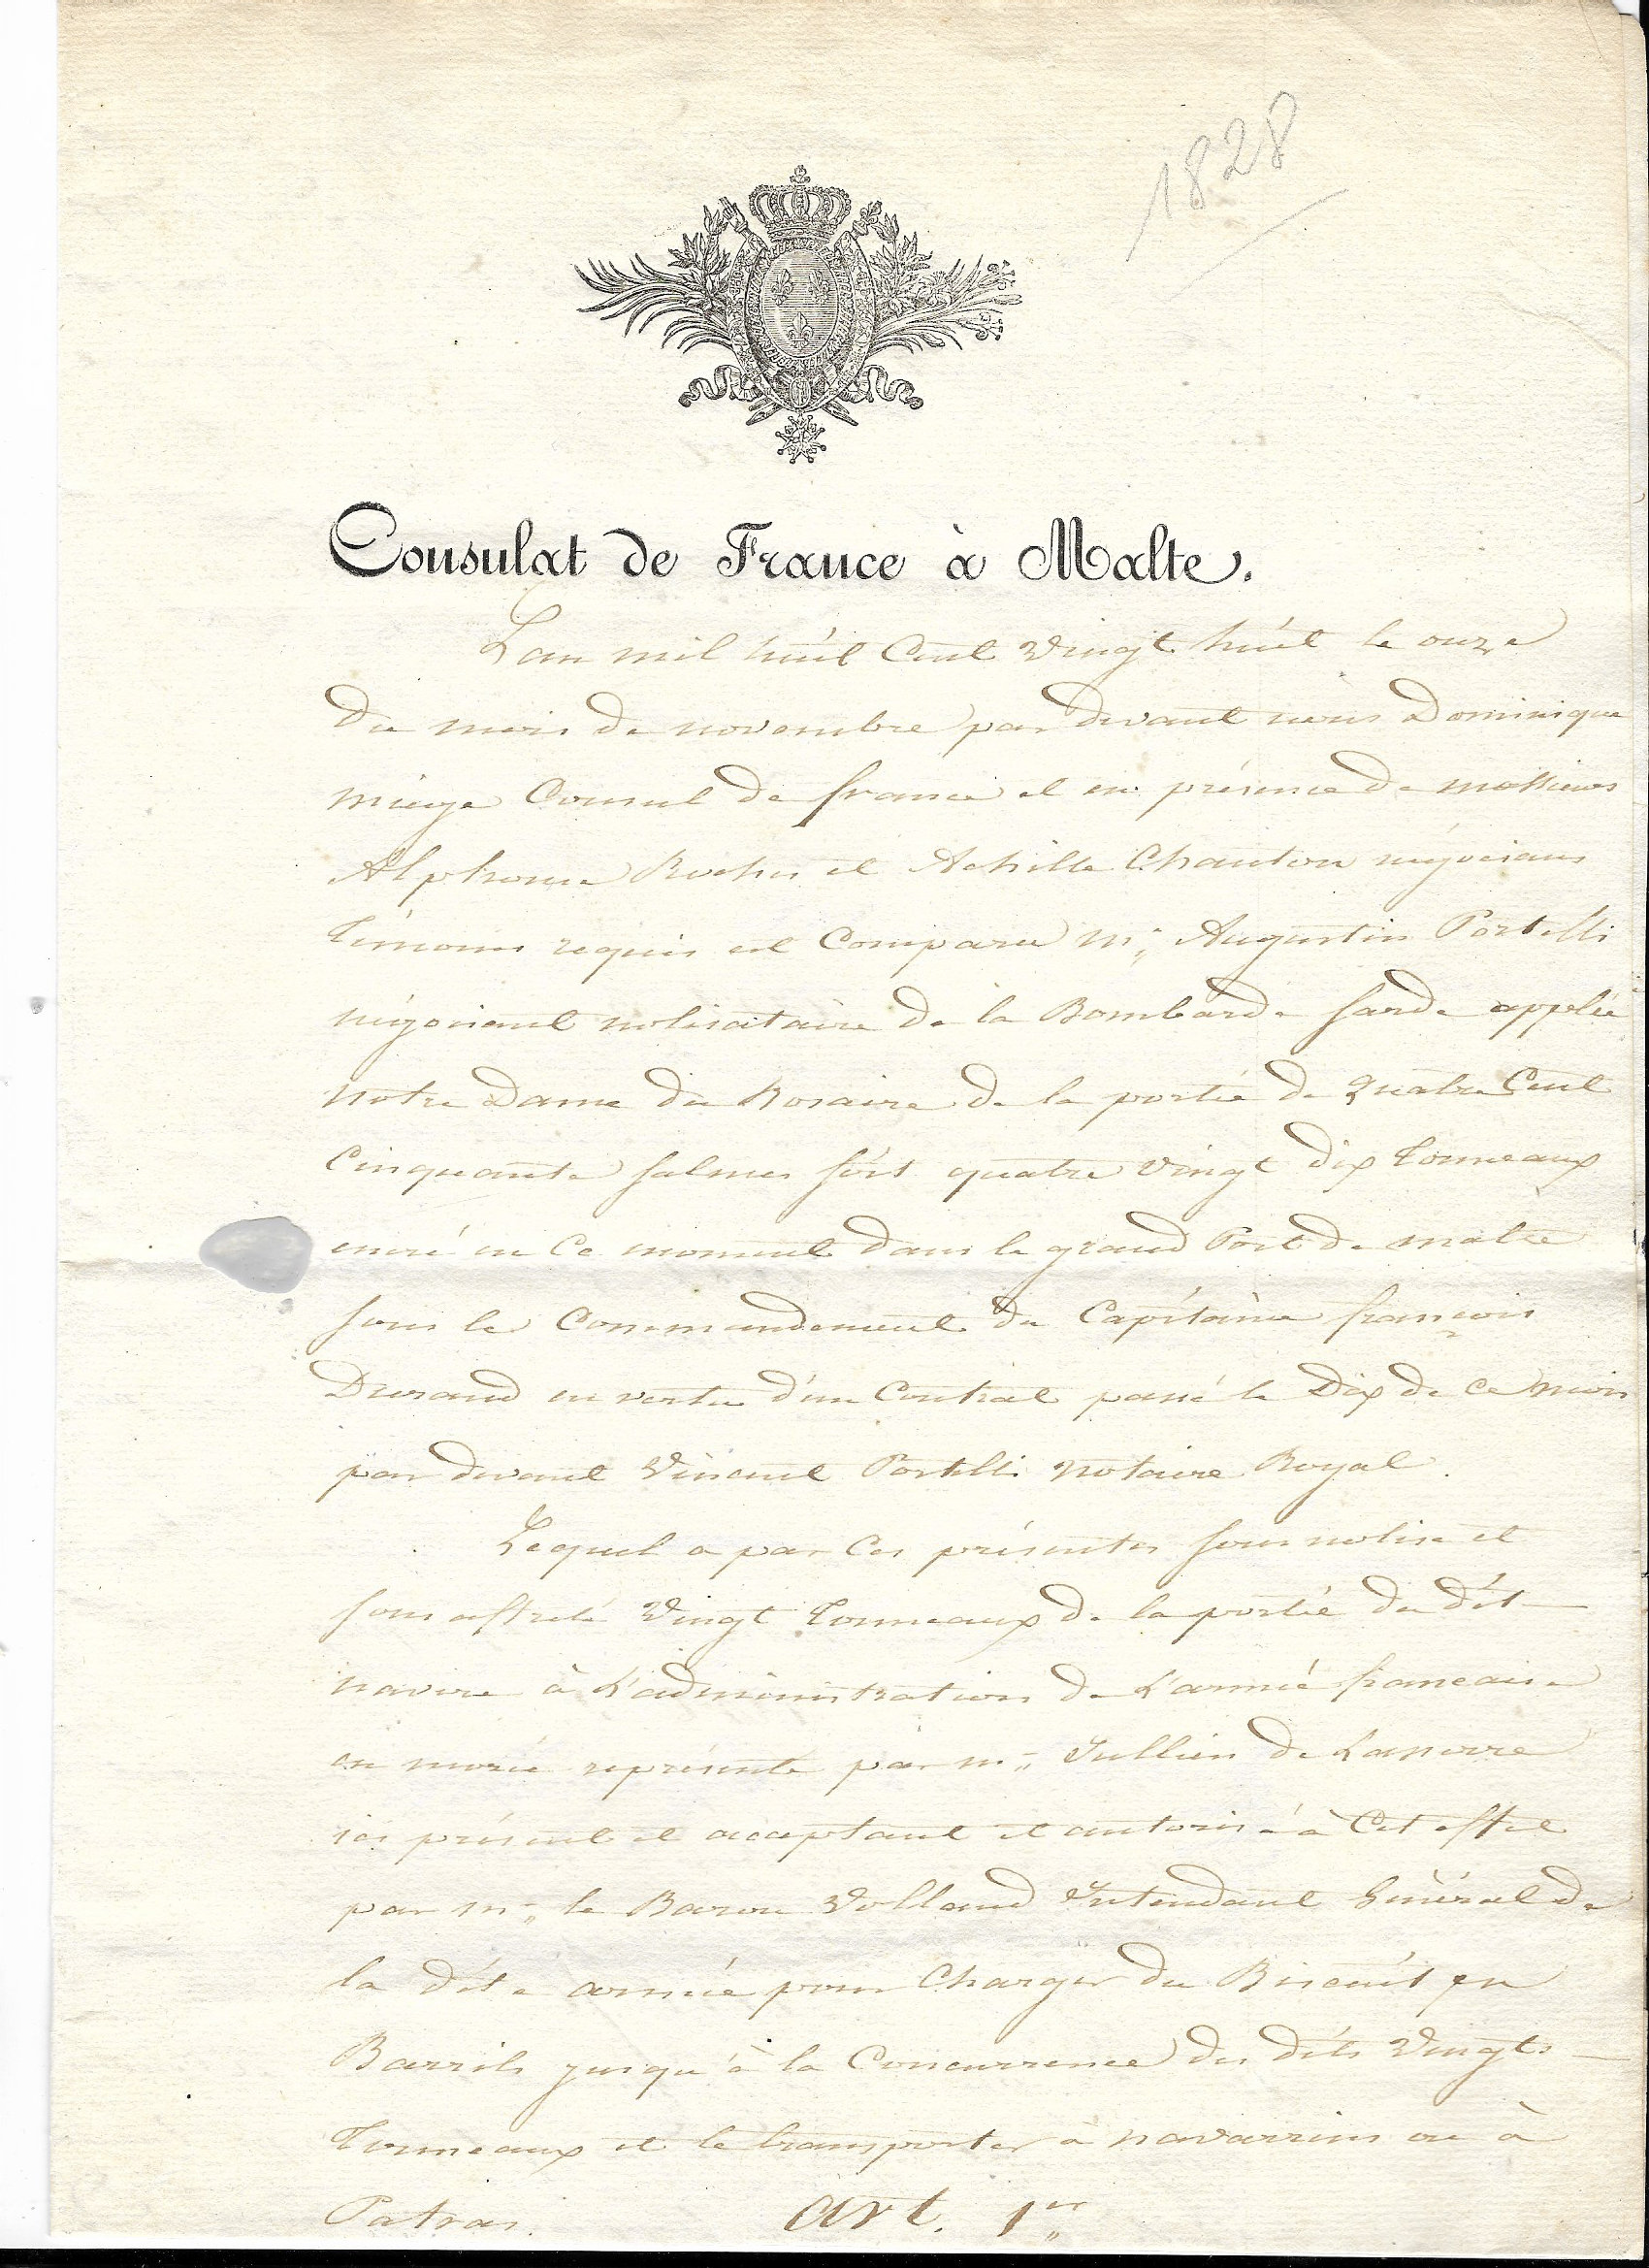 1828
Consulat de France à Malte.
L'an mil huit Cent Vingt huit le onze
du mois de novembre par devant nous Dominique
miège Consul de france et en présence de messieurs
Alphonse et Achille Chanton négocians
Témoins requis est Comparu Mr. Augustin Portelli
négociant nolisataire de la Bombarde sarde appelée
notre Dame du Rosaire de la portée de quatre Cent
Cinquante salmes soit quatre vingt dix Tonneaux
ancré en Ce moment dans le grand Port de malte
sous le Commandement du Capitaine françois
Durand en vertu d'un Contrat passé le Dix de Ce mois
par devant Vincent Portelli notaire Royal.
Lequel a par Ces présentes sous nolisé et
sous affreté Vingt Tonneaux de la portée du dit
navire à L'administration de L'armée francaise
en morée représenté par mr. Jullien de
ici présent et acceptant et autorisé à Cet effet
par mr. le Baron Volland Intendant Général de
la dite armée pour Charger du Biscuit en
Barrils jusqu'à la Concurrence des dits Vingts
Tonneaux et le transporter à navarrins ou à
Patras. art. 1er